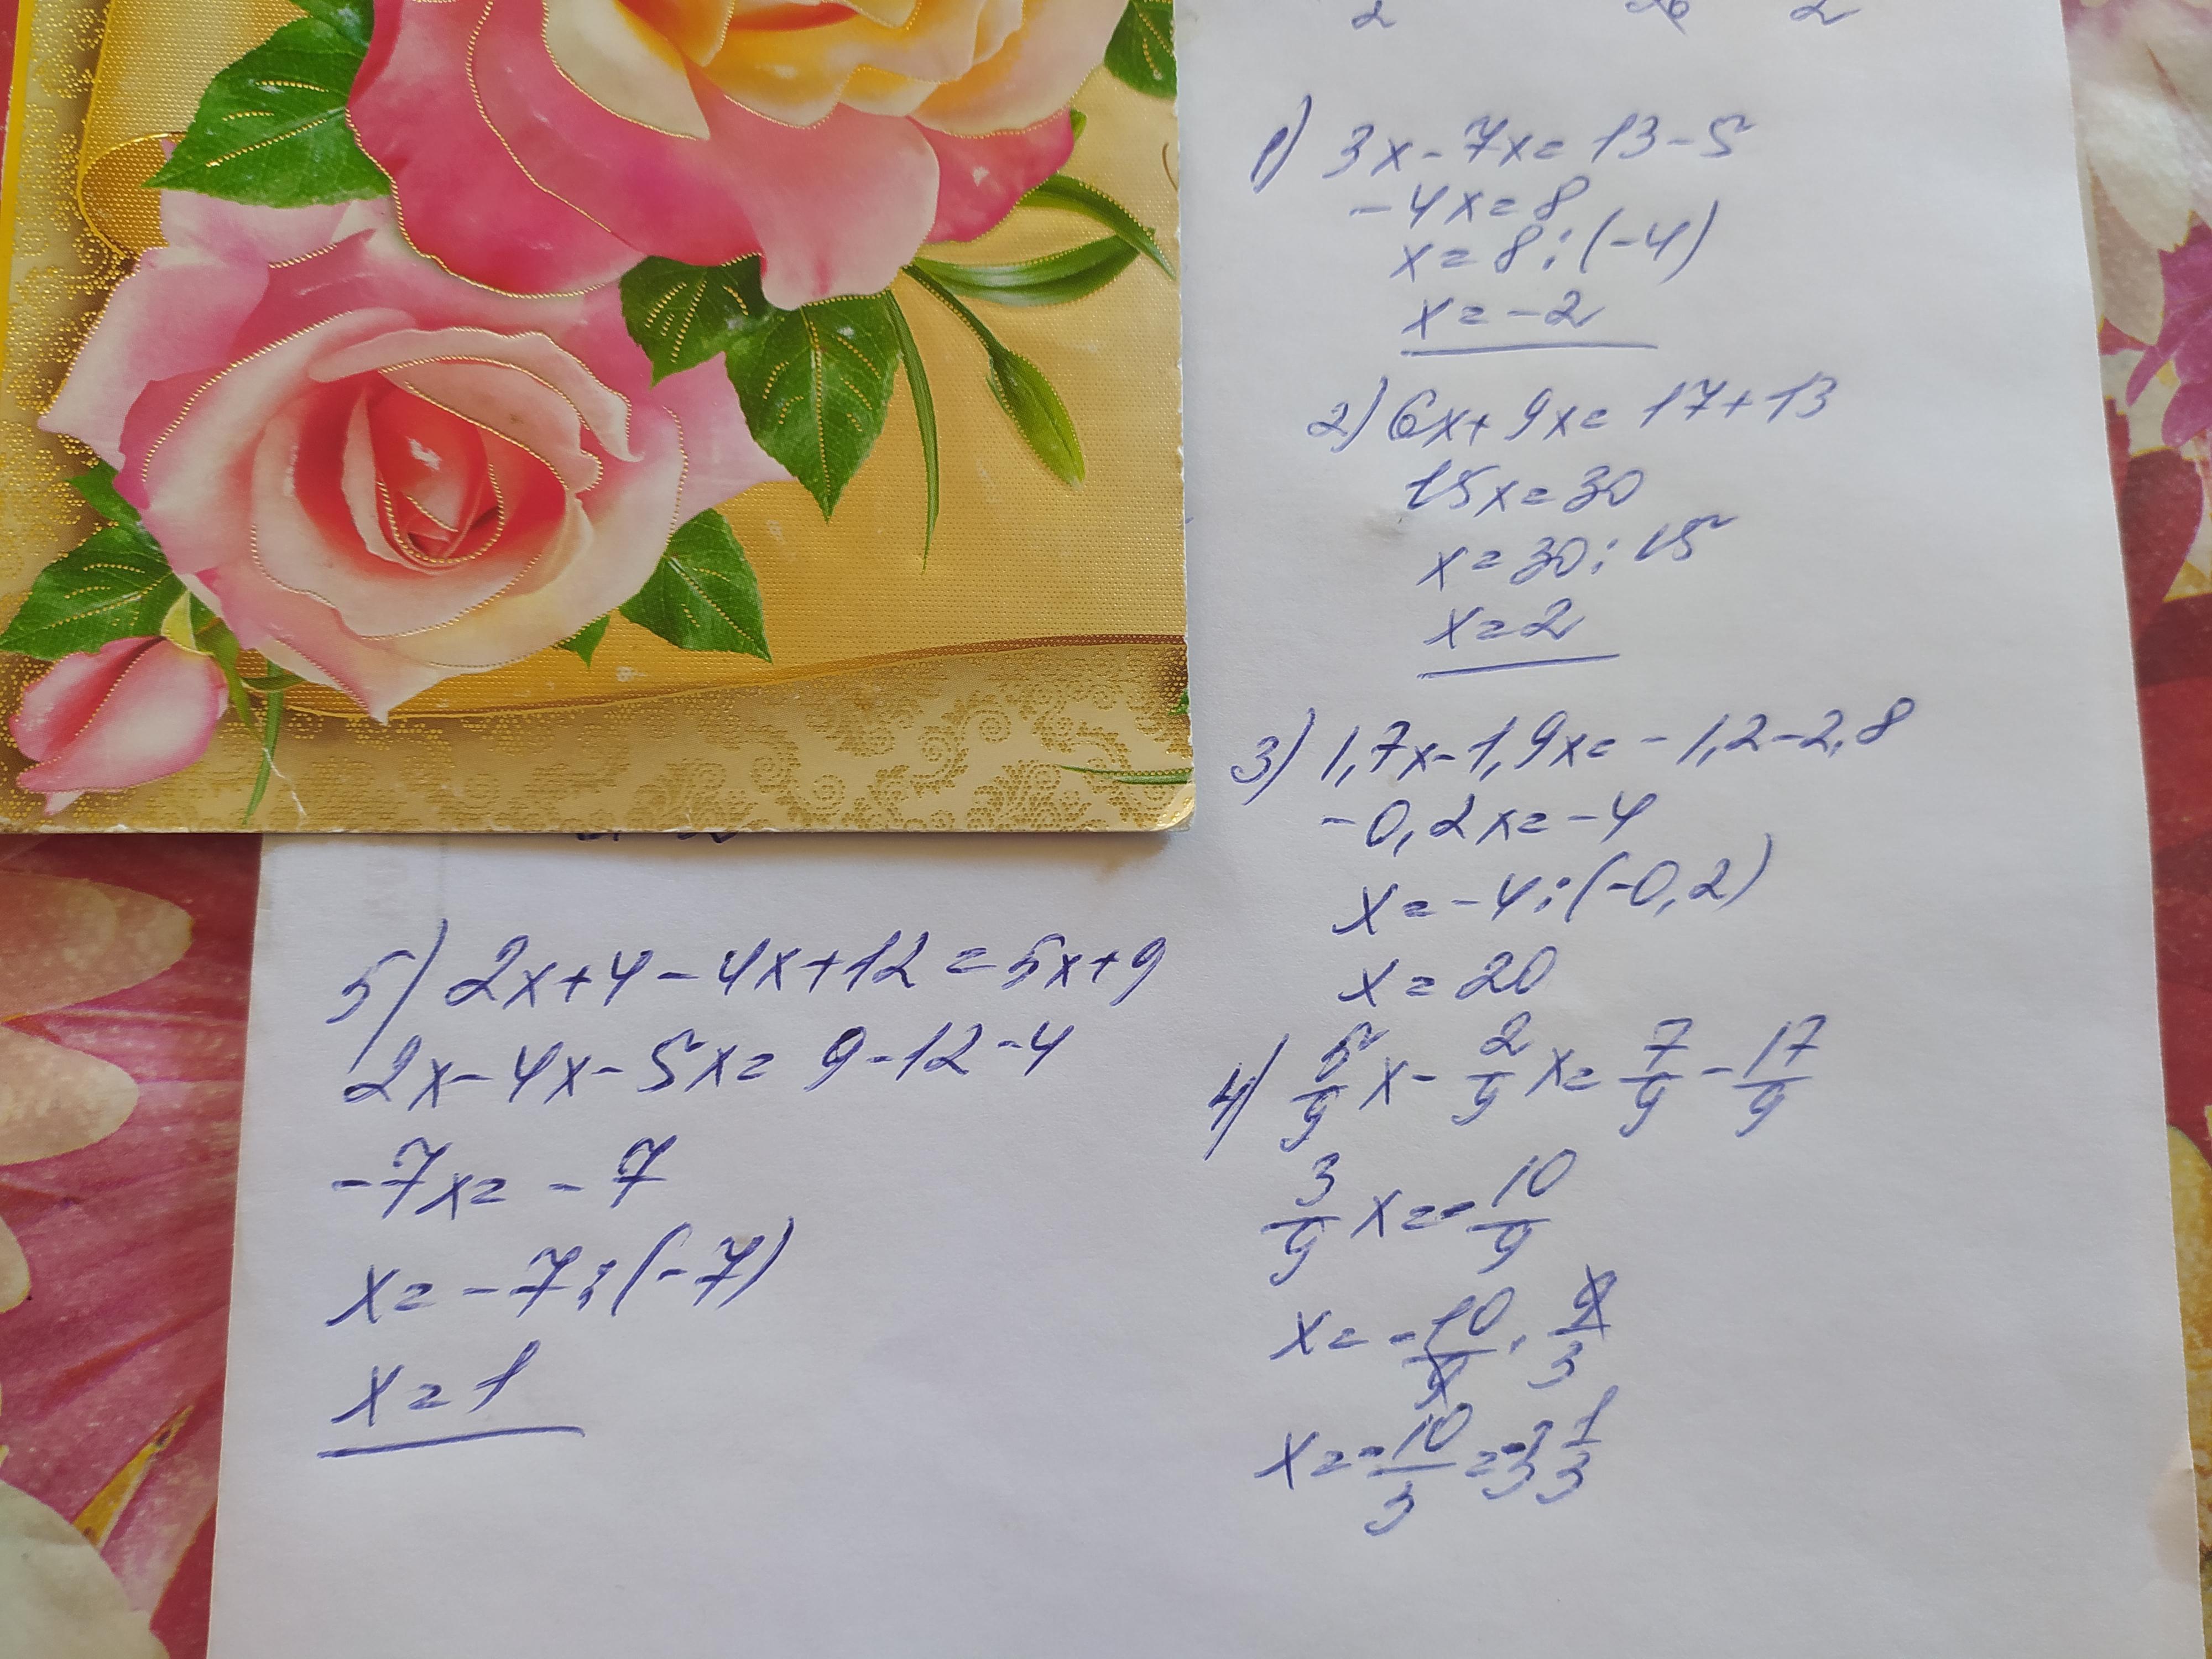 1) 3x - 7x = 13 - 5
-4x = 8
x = 8 : (-4)
x = -2
2) 6x + 9x = 17 + 13
15x = 30
x = 30 : 15
x = 2
3) 1,7x - 1,9x = -1,2 - 2,8
-0,2x = -4
x = -4 : (-0,2)
x = 20
4) 5/9 x - 2/9 x = 7/9 - 17/9
3/9 x = -10/9
x = -10/9 · 9/3
x = -10/3 = -3 1/3
5) 2x + 4 - 4x + 12 = 5x + 9
2x - 4x - 5x = 9 - 12 - 4
-7x = -7
x = -7 : (-7)
x = 1